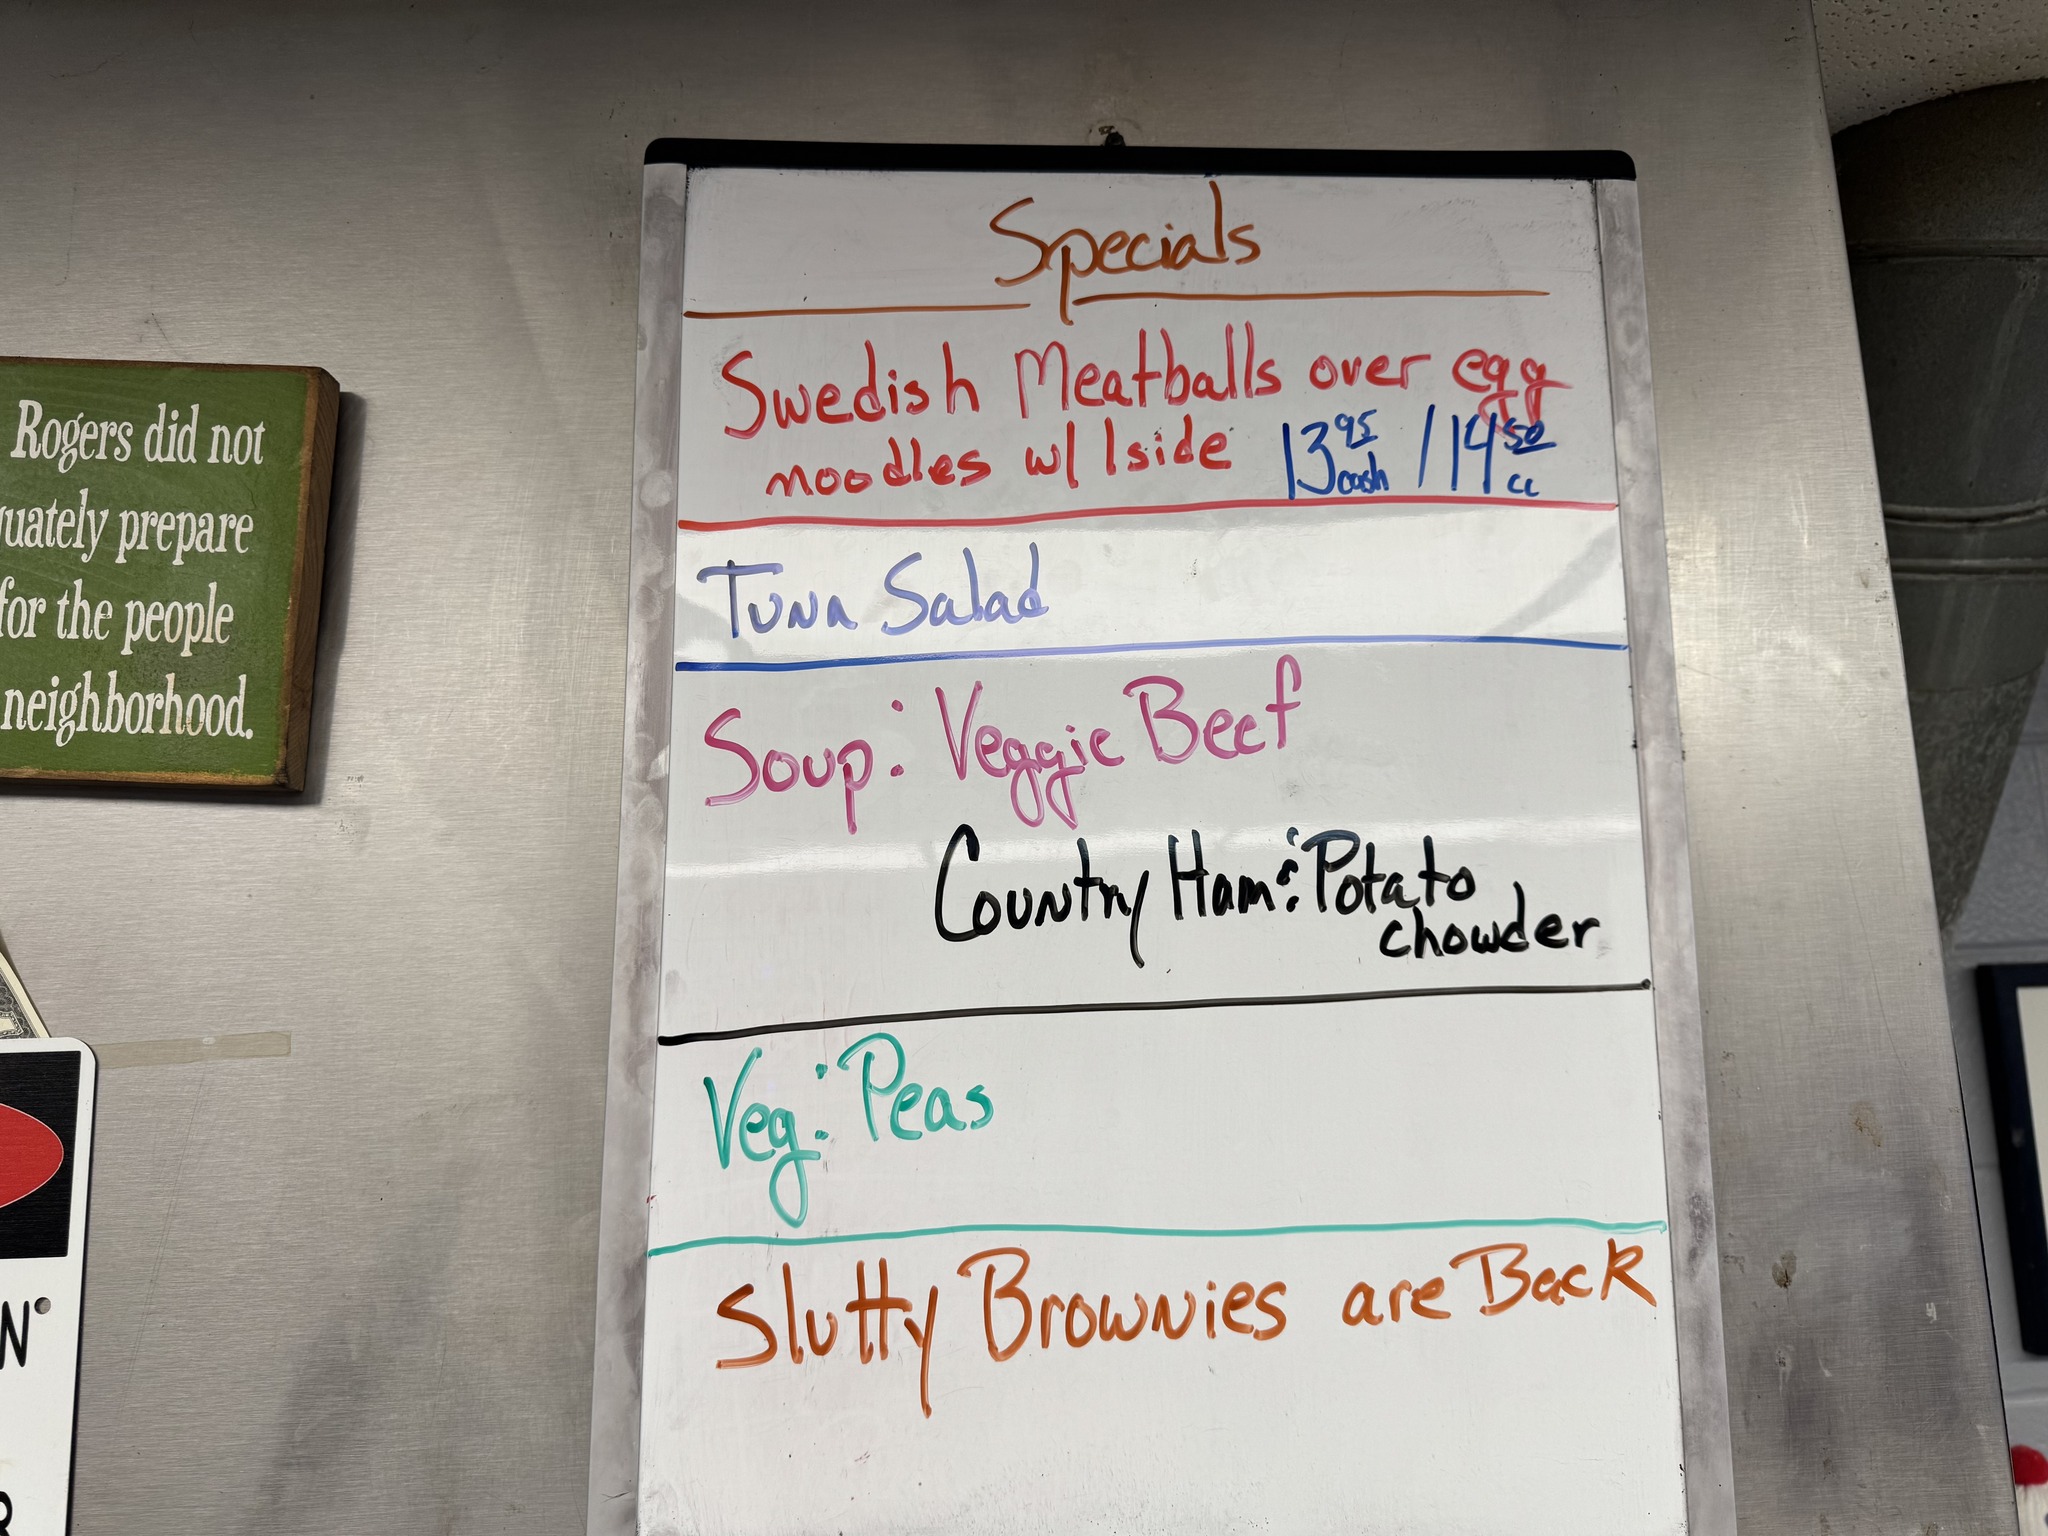 Specials
Swedish Meatballs over egg
noodles w/ 1side 13 95 cash / 14 50 cc
Tuna Salad
Soup: Veggie Beef
Country Ham & Potato
chowder
Veg: Peas
Slutty Brownies are Back
Rogers did not
quately prepare
for the people
neighborhood.
N
R